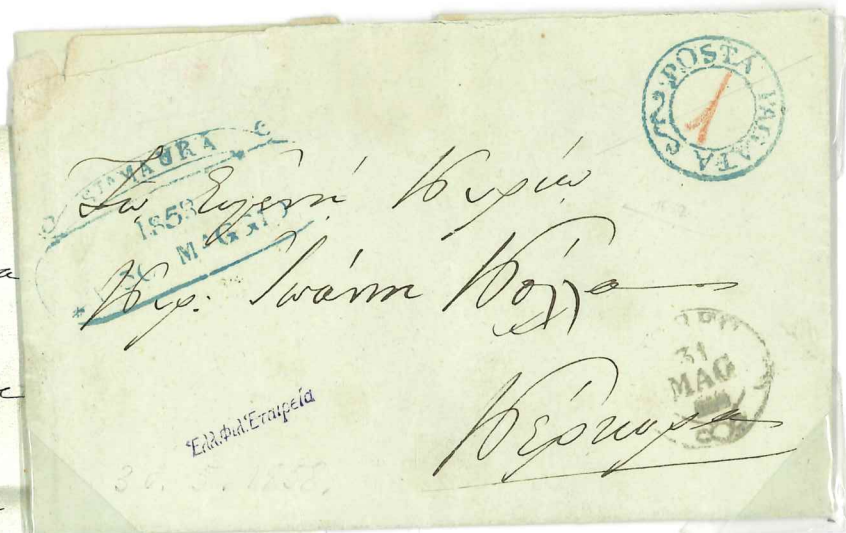 POSTA PAGATA
1
STA MAURA
1858
MAGGIO
Τω Ευγενή Κυρίω
Κυρ. Ιωάννη Κόλλα
31
MAG
Κέρκυρα
Ἑλλ.Φιλ.Ἑταιρεία
30. 5. 1858.